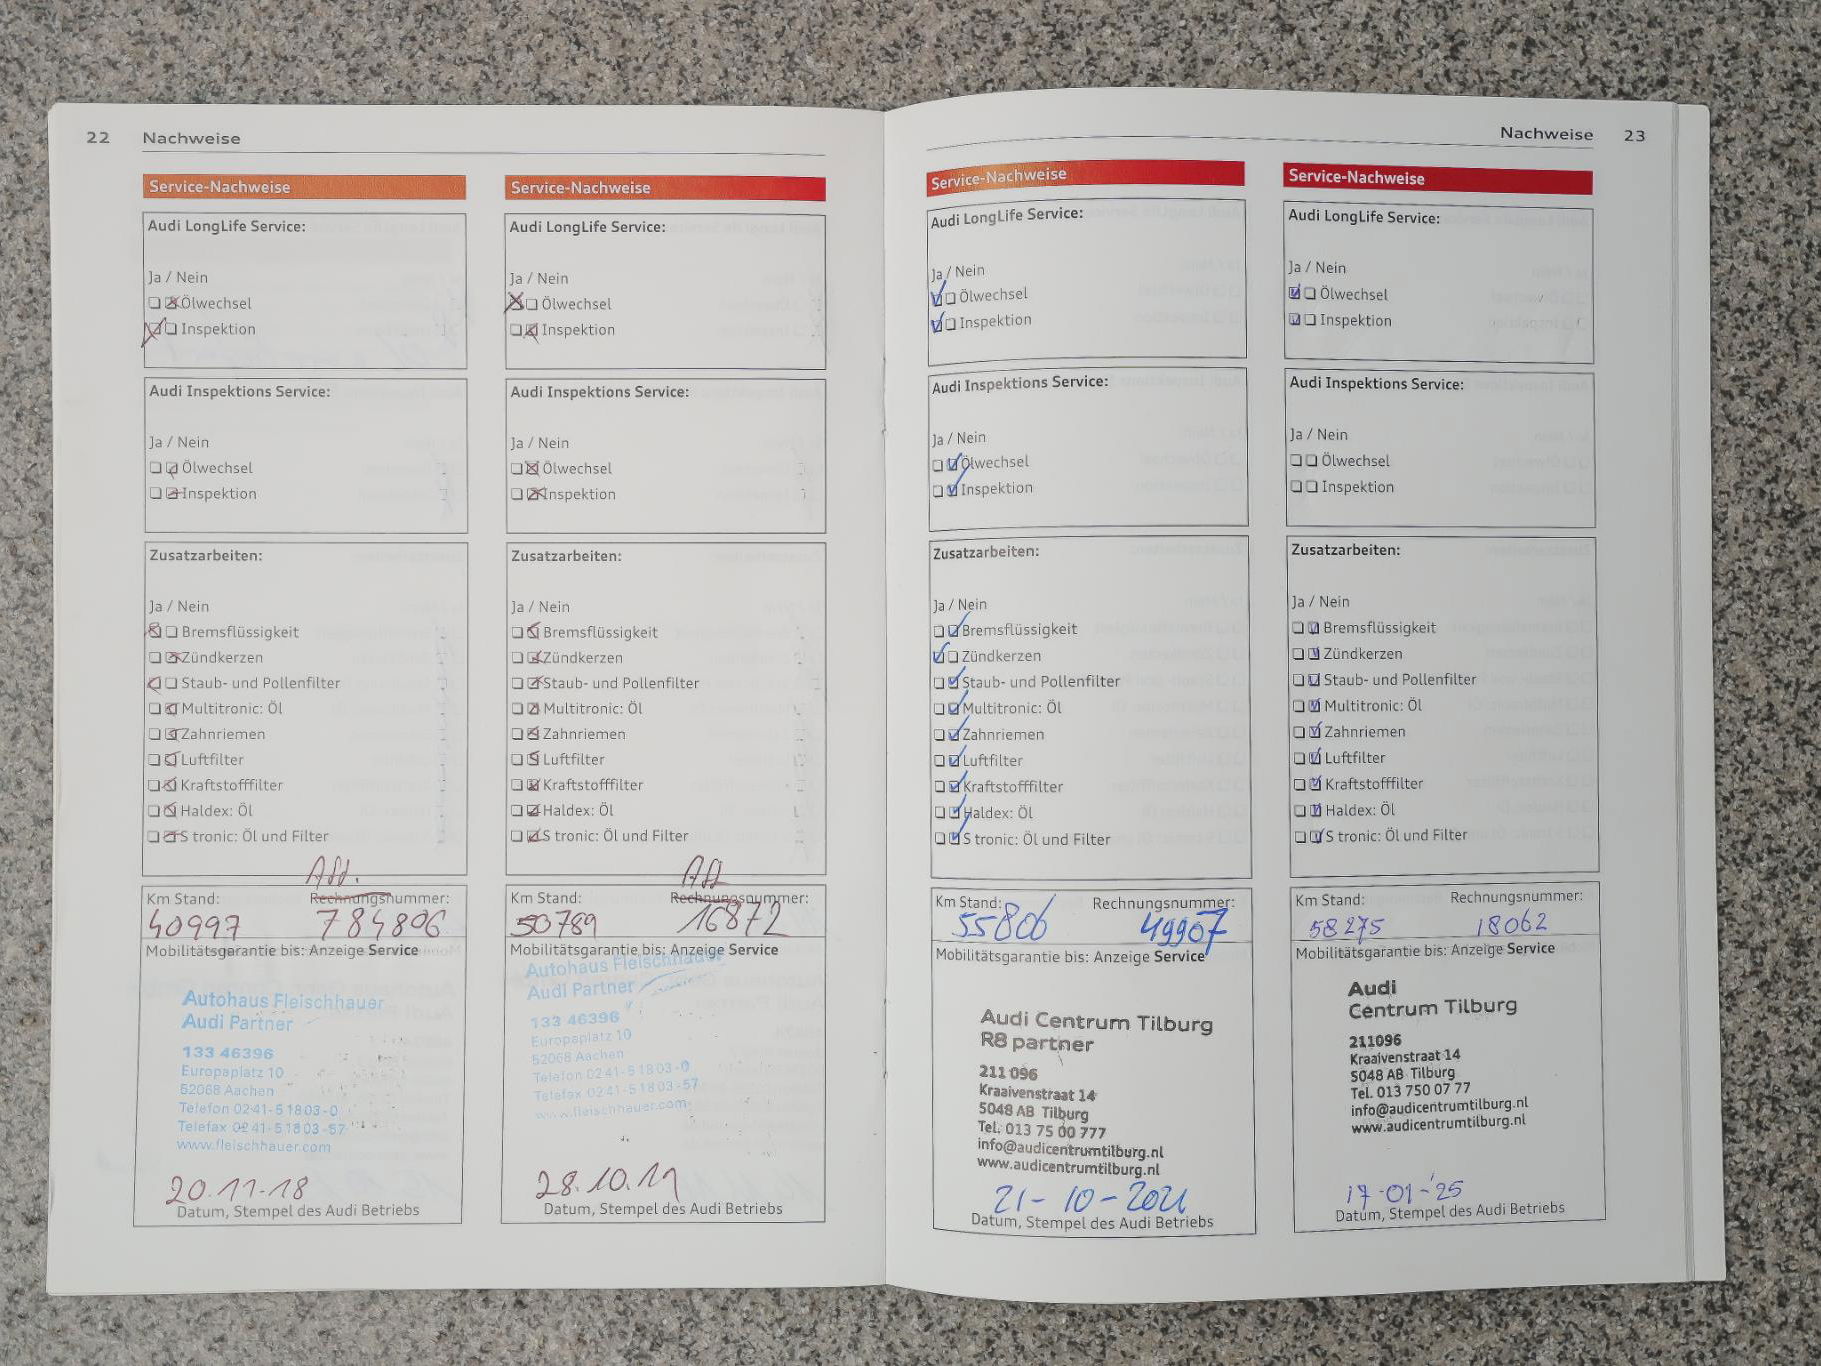 22 Nachweise
Service-Nachweise
Audi LongLife Service:
Ja / Nein
Ölwechsel
Inspektion
Audi Inspektions Service:
Ja / Nein
Ölwechsel
Inspektion
Zusatzarbeiten:
Ja / Nein
Bremsflüssigkeit
Zündkerzen
Staub- und Pollenfilter
Multitronic: Öl
Zahnriemen
Luftfilter
Kraftstofffilter
Haldex: Öl
S tronic: Öl und Filter
Km Stand: Rechnungsnummer:
40997 784806
Mobilitätsgarantie bis: Anzeige Service
Autohaus Fleischhauer
Audi Partner
133 46396
Europaplatz 10
52068 Aachen
Telefon 02 41-5 18 03-0
Telefax 02 41-5 18 03-57
www.fleischhauer.com
20.11-18
Datum, Stempel des Audi Betriebs
Service-Nachweise
Audi LongLife Service:
Ja / Nein
Ölwechsel
Inspektion
Audi Inspektions Service:
Ja / Nein
Ölwechsel
Inspektion
Zusatzarbeiten:
Ja / Nein
Bremsflüssigkeit
Zündkerzen
Staub- und Pollenfilter
Multitronic: Öl
Zahnriemen
Luftfilter
Kraftstofffilter
Haldex: Öl
S tronic: Öl und Filter
Km Stand: Rechnungsnummer:
50789 16872
Mobilitätsgarantie bis: Anzeige Service
Autohaus Fleischhauer
Audi Partner
133 46396
Europaplatz 10
52068 Aachen
Telefon 02 41-5 18 03-0
Telefax 02 41-5 18 03-57
www.fleischhauer.com
28.10.19
Datum, Stempel des Audi Betriebs
Nachweise 23
Service-Nachweise
Audi LongLife Service:
Ja / Nein
Ölwechsel
Inspektion
Audi Inspektions Service:
Ja / Nein
Ölwechsel
Inspektion
Zusatzarbeiten:
Ja / Nein
Bremsflüssigkeit
Zündkerzen
Staub- und Pollenfilter
Multitronic: Öl
Zahnriemen
Luftfilter
Kraftstofffilter
Haldex: Öl
S tronic: Öl und Filter
Km Stand: Rechnungsnummer:
55806 49907
Mobilitätsgarantie bis: Anzeige Service
Audi Centrum Tilburg
R8 partner
211 096
Kraaivenstraat 14
5048 AB Tilburg
Tel. 013 75 00 777
info@audicentrumtilburg.nl
www.audicentrumtilburg.nl
21-10-2021
Datum, Stempel des Audi Betriebs
Service-Nachweise
Audi LongLife Service:
Ja / Nein
Ölwechsel
Inspektion
Audi Inspektions Service:
Ja / Nein
Ölwechsel
Inspektion
Zusatzarbeiten:
Ja / Nein
Bremsflüssigkeit
Zündkerzen
Staub- und Pollenfilter
Multitronic: Öl
Zahnriemen
Luftfilter
Kraftstofffilter
Haldex: Öl
S tronic: Öl und Filter
Km Stand: Rechnungsnummer:
58275 18062
Mobilitätsgarantie bis: Anzeige Service
Audi
Centrum Tilburg
211096
Kraaivenstraat 14
5048 AB Tilburg
Tel. 013 750 07 77
info@audicentrumtilburg.nl
www.audicentrumtilburg.nl
17-01-'25
Datum, Stempel des Audi Betriebs